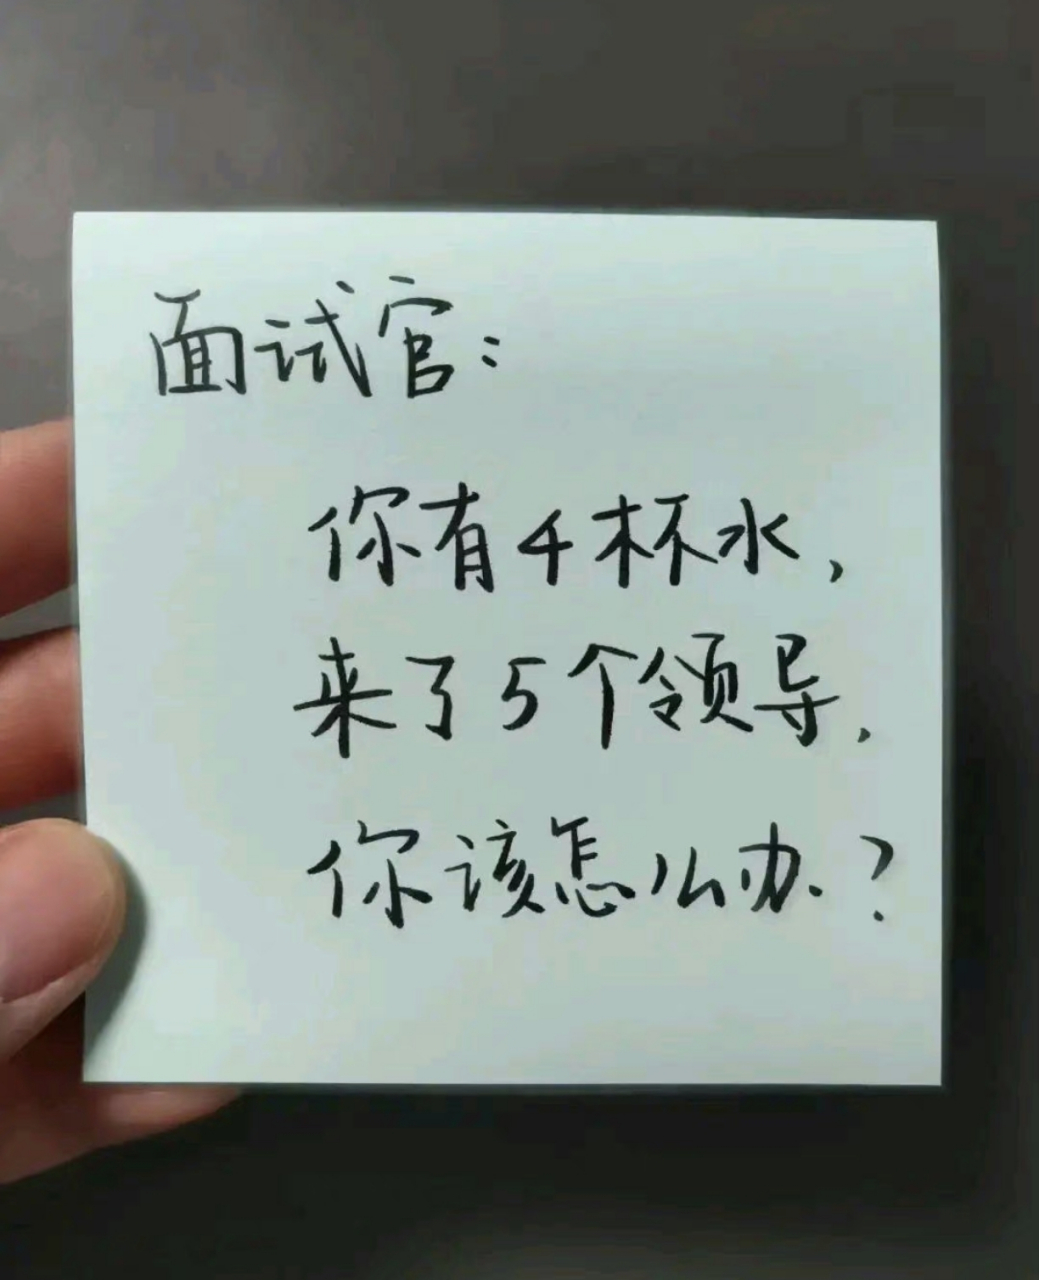 面试官：
你有4杯水，
来了5个领导，
你该怎么办？